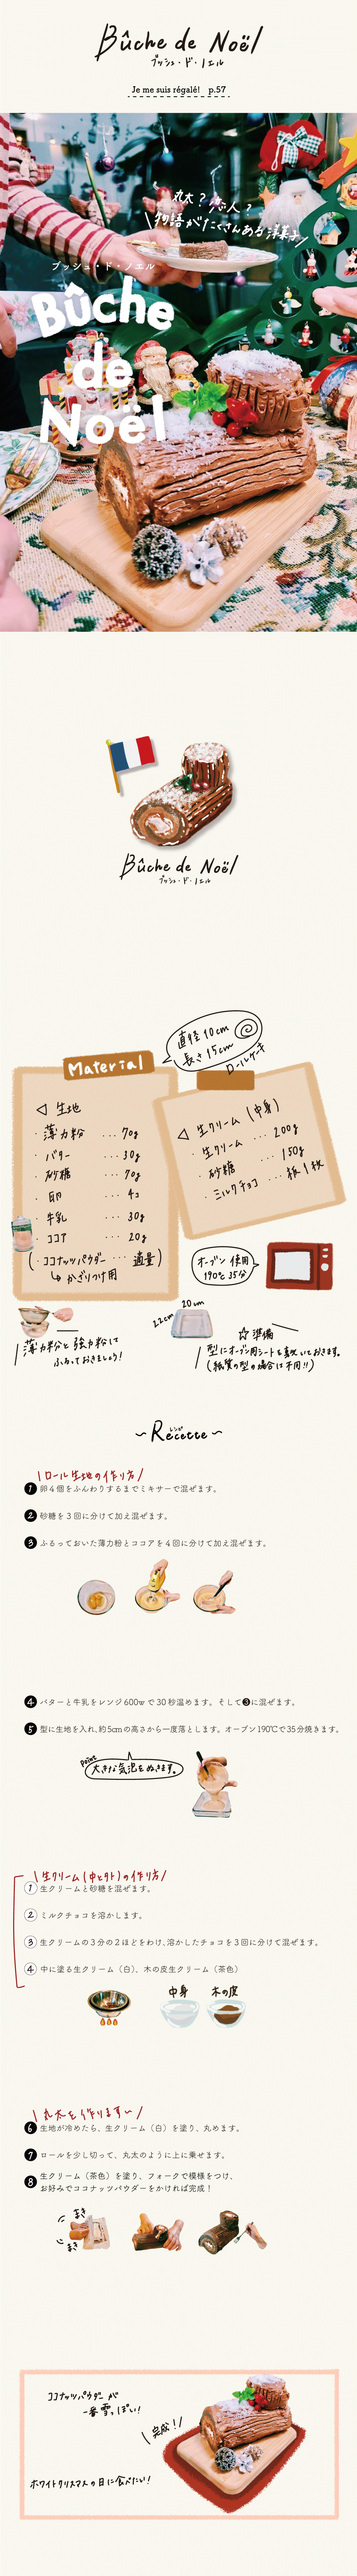 Bûche de Noël
ブッシュ・ド・ノエル
Je me suis régalé! p.57
丸太？恋人？
物語がたくさんある洋菓子
ブッシュ・ド・ノエル
Bûche
de
Noël
Bûche de Noël
ブッシュ・ド・ノエル
直径10cm
長さ15cm
ロールケーキ
Material
◁ 生地
薄力粉 ... 70g
・バター ... 30g
・砂糖 ... 70g
・卵 ... 4コ
・牛乳 ... 30g
・ココア ... 20g
(・ココナッツパウダー ... 適量)
↳ かざりつけ用
◁ 生クリーム（中身）
・生クリーム ... 200g
・砂糖 ... 150g
・ミルクチョコ ... 板1枚
オーブン使用
190℃ 35分
薄力粉と強力粉は
ふるっておきましょう！
20cm
22cm
☆準備
型にオーブン用シートを敷いておきます。
（紙質の型の場合は不用!!）
~Recette~
レシピ
ロール生地の作り方
❶ 卵４個をふんわりするまでミキサーで混ぜます。
❷ 砂糖を３回に分けて加え混ぜます。
❸ ふるっておいた薄力粉とココアを４回に分けて加え混ぜます。
❹ バターと牛乳をレンジ600wで30秒温めます。そして❸に混ぜます。
❺ 型に生地を入れ、約5cmの高さから一度落とします。オーブン190℃で35分焼きます。
point
大きな気泡をぬきます。
生クリーム（中と外）の作り方
① 生クリームと砂糖を混ぜます。
② ミルクチョコを溶かします。
③ 生クリームの３分の２ほどをわけ、溶かしたチョコを３回に分けて混ぜます。
④ 中に塗る生クリーム（白）、木の皮生クリーム（茶色）
中身 木の皮
丸太を作ります〜
❻ 生地が冷めたら、生クリーム（白）を塗り、丸めます。
❼ ロールを少し切って、丸太のように上に乗せます。
❽ 生クリーム（茶色）を塗り、フォークで模様をつけ、
お好みでココナッツパウダーをかければ完成！
まき
まき
ココナッツパウダーが
一番雪っぽい！
完成！
ホワイトクリスマスの日に食べたい！